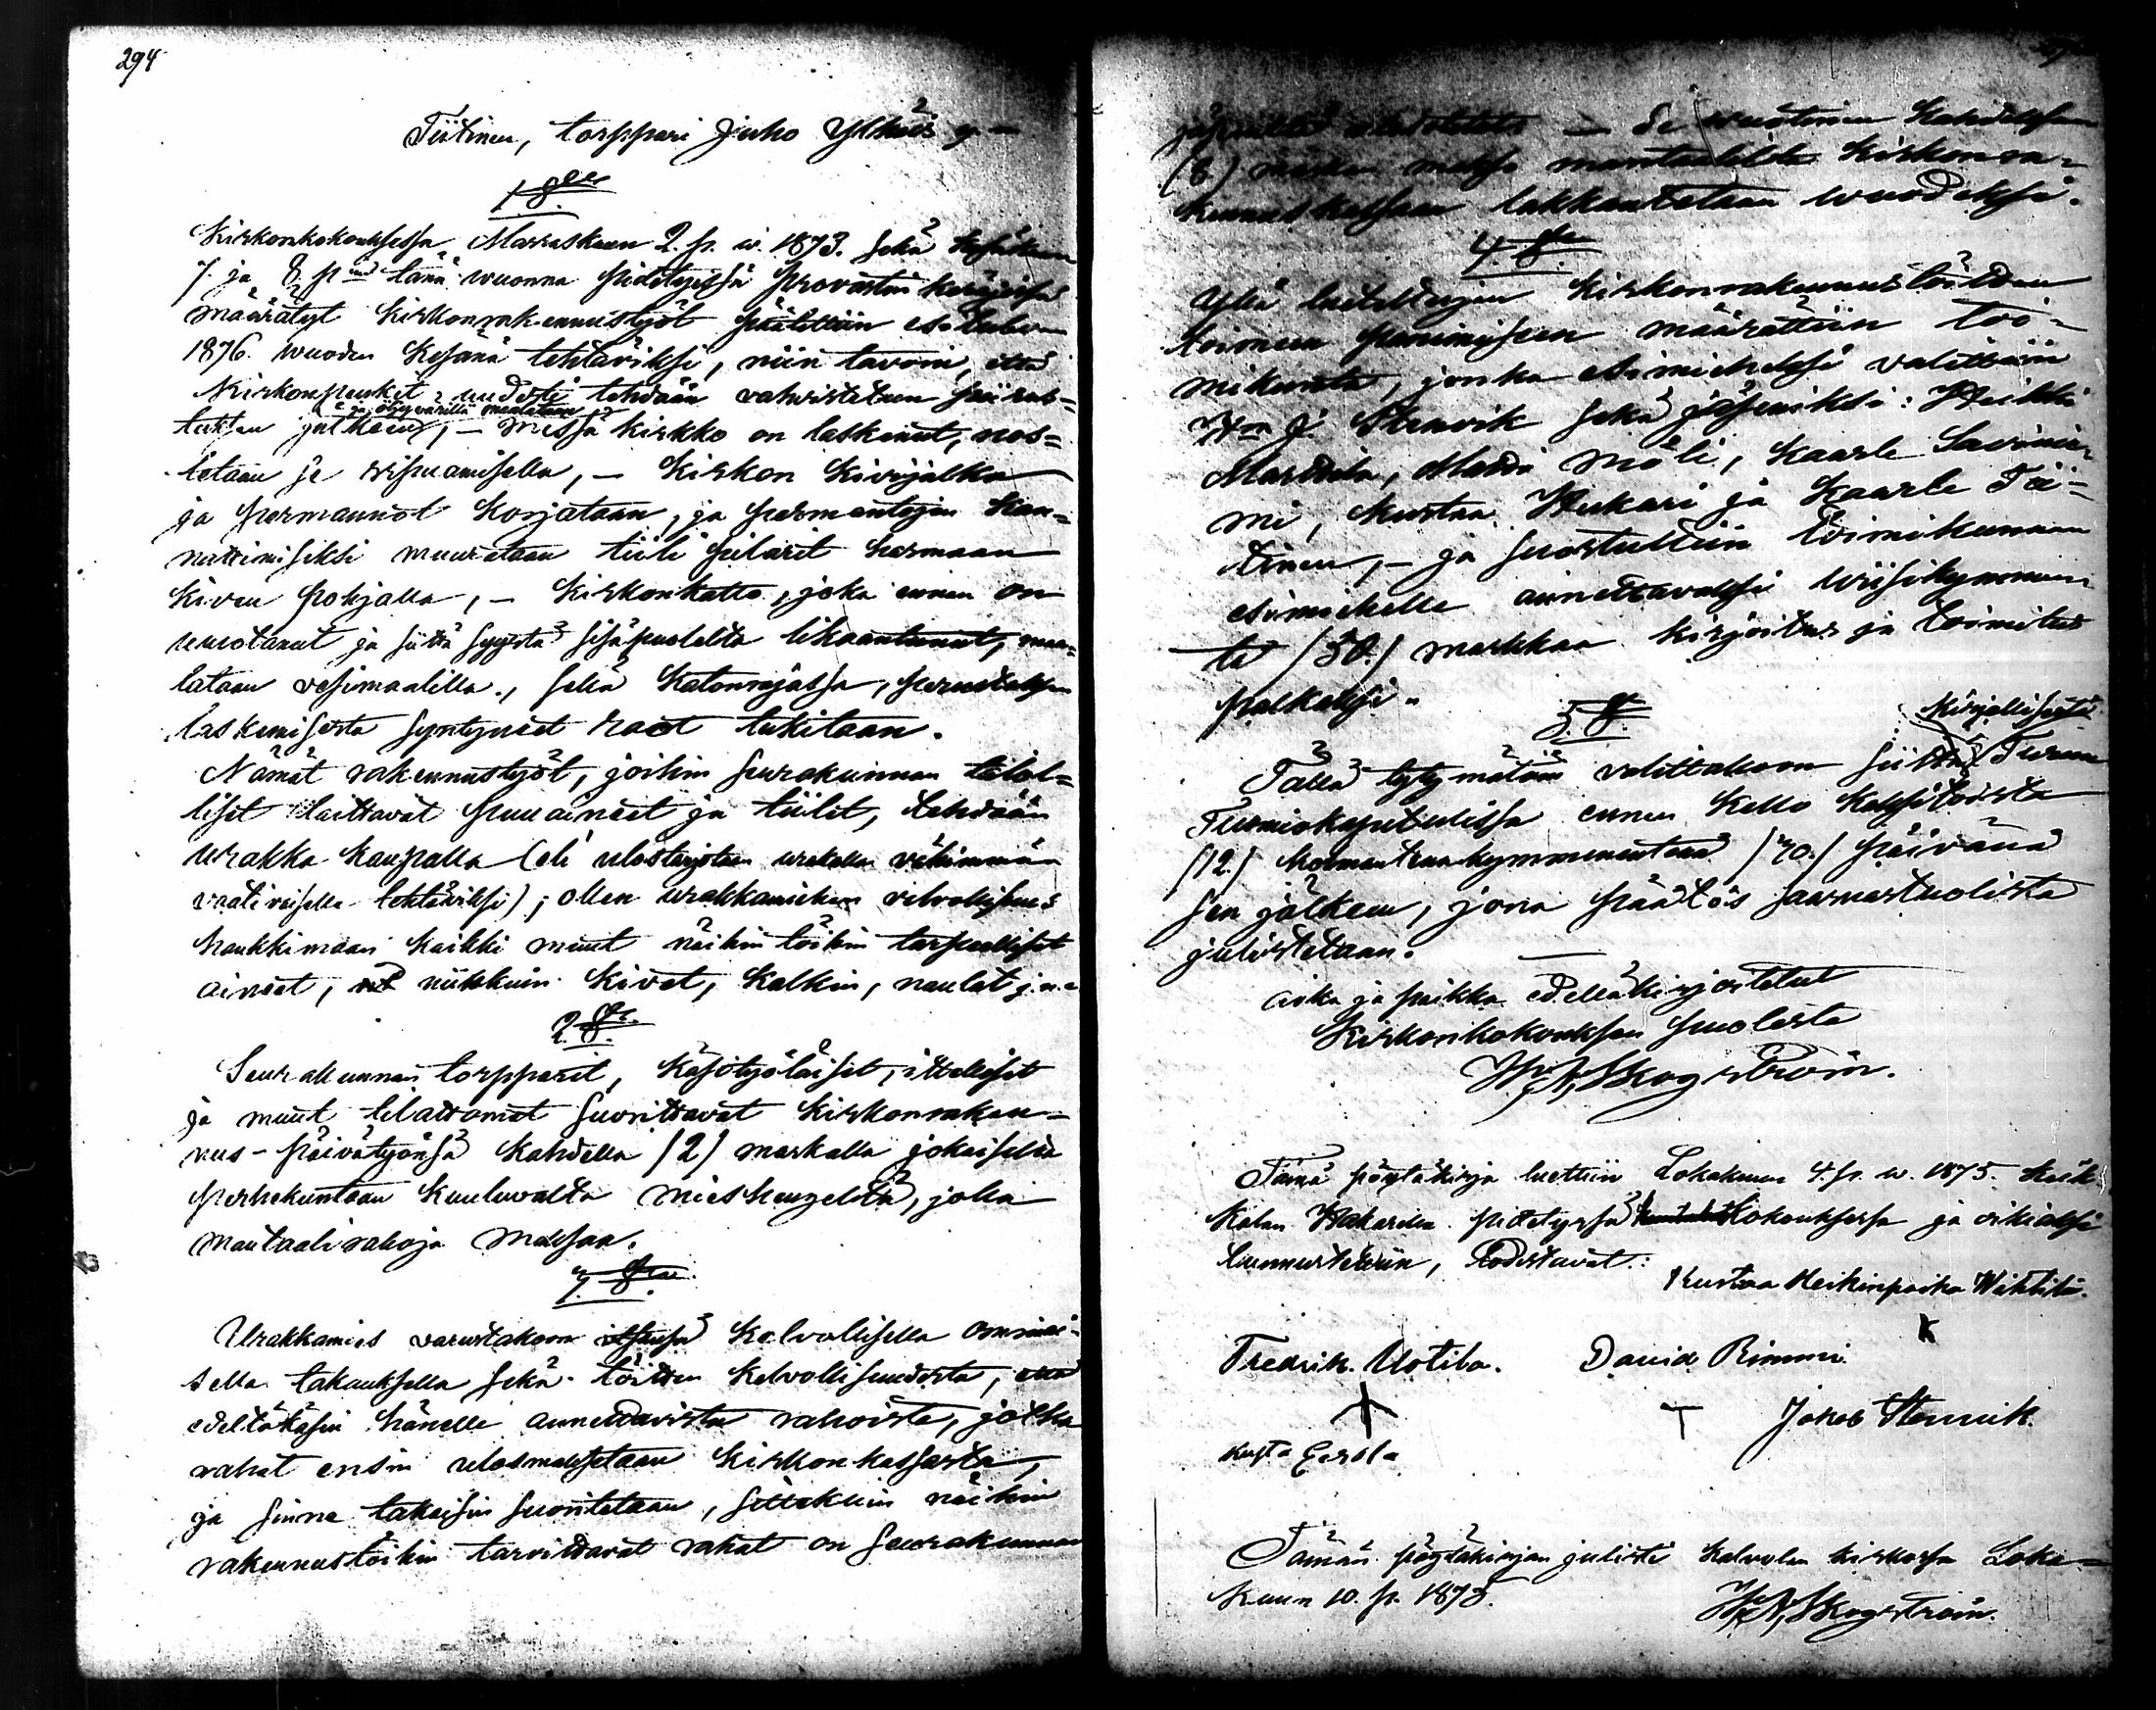 294
Tiitinen, torppari Juho Ylhäis y.
1 §.
Kirkonkokouksessa Marraskuun 2. p. w. 1873. sekä Kesäkuun
7. ja 8. p tänä wuonna pidetyissä provastin käräjissä
määrätyt kirkonrakennustyöt päätettiin esitulevan
1876. wuoden kesänä tehtäviksi, niin tavoin, että
Kirkonpenkit uudesti tehdään vahvistetun piirus-
ja öljyvärillä maalataan
tuksen jälkeen, – missä kirkko on laskenut, nos-
tetaan se ripuamisella, – Kirkon kivijalka
ja permannot korjataan, ja permantojen kan-
nattimiseksi muurataan tiili pilarit harmaan
kiven pohjalla, – Kirkonkatto, joka ennen on
vuotanut ja siitä syystä sisäpuolelta likaantunut, maa-
lataan vesimaalilla, sekä katonrajassa, perustuksen
laskemisesta syntyneet raot tukitaan.
Nämät rakennustyöt, joihin seurakunnan tilol-
liset laittavat puuaineet ja tiilit, tehdään
urakka kaupalla (eli ulostarjotaan urakalla vähimmän
vaativaiselle tehtäviksi); ollen urakkamiehen velvollisuus
hankkimaan kaikki muut näihin töihin tarpeelliset
aineet, niinkuin kivet, kalkin, naulat j.n.e
2 §.
Seurakunnan torpparit, käsityöläiset, itselliset
ja muut tilattomat suorittavat kirkonraken-
nus-päivätyönsä kahdella (2) markalla jokaiselta
perhekuntaan kuuluvalta mieshengeltä, joka
mantaalirahoja maksaa.
3 §.
Urakkamies varustakoon itsensä kelvollisella ominai-
sella takauksella sekä töitten kelvollisuudesta, että
edeltäkäsin hänelle annettavista rahoista, jotka
rahat ensin ulosmaksetaan kirkonkassasta,
ja sinne takaisin suoritetaan, sittekuin näihin
rakennustöihin tarvittavat rahat on seurakunnan
– Se wuotinen kahdeksan
(8.) markan maksu mantaalilta kirkonra-
kennuskassaan lakkautetaan wuodeksi.
4 §.
Yllä lueteltujen kirkonrakennustöitten
toimeen panemiseen määrättiin toi-
mikunta, jonka esimieheksi valittiin
Hra J. Stenvik sekä jäseniksi: Heikki
Marttila, Matti Möli, Kaarle Saviniemi-
mi, Kustaa Hukari ja Kaarle Tii-
tinen, – ja suostuttiin toimikunnan
esimiehelle annettavaksi wiisikymmen-
tä (50.) markkaa kirjoitus ja toimitus
palkaksi.
5 §.
kirjallisesti
Tällä tytymätöin valittakoon siitä Turun
Tuomiokapitulissa ennen kello kaksitoista
(12.) kolmantenakymmenentenä (30.) päivänä
sen jälkeen, jona päätös saarnastuolista
julistetaan.
Aika ja paikka edelläkirjoitetut
Kirkonkokouksen puolesta
Skogström.
Tämä pöytäkirja luettiin Lokakuun 4. p. w. 1875.
pidetyssä kokouksessa ja oikiaksi
tunnustettiin, todistavat:
Kustaa Heikinpoika Wähtilä.
Fredrik Uotila. David Rimmi.
Jakob Stenvik.
Kusta Eerola
Tämän pöytäkirjan julisti Kalvolan kirkossa Loka-
kuun 10. p. 1875.
Skogström.